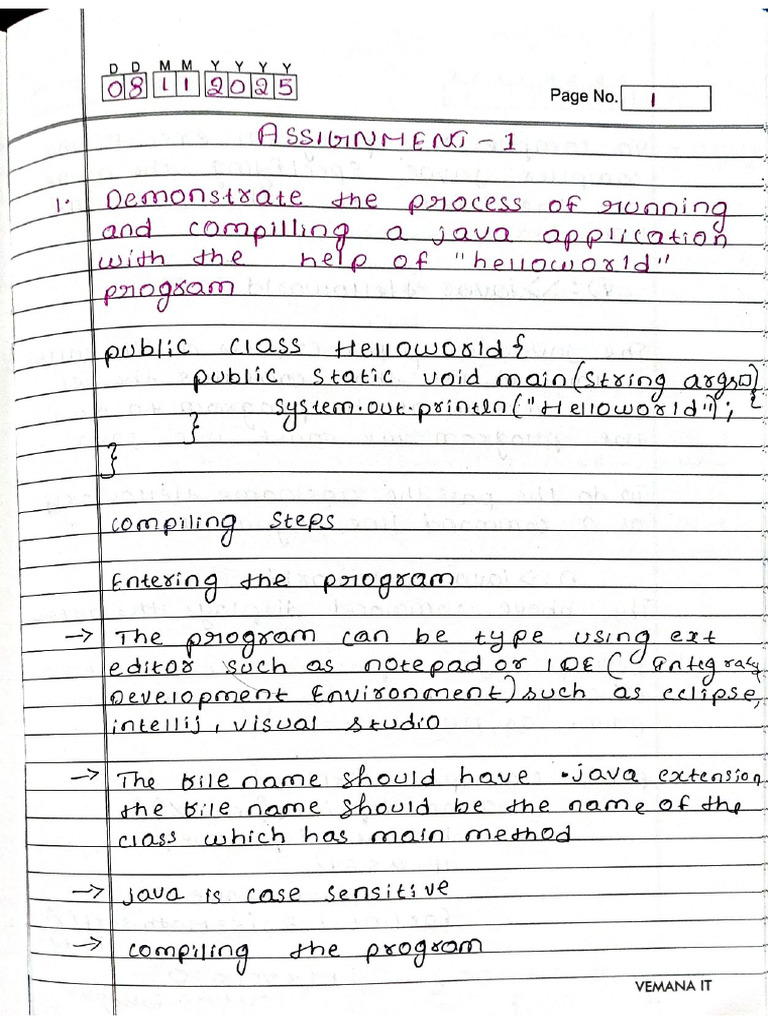 D D M M Y Y Y Y
08 11 2025
Page No. 1
ASSIGNMENT - 1
1. Demonstrate the process of running
and compilling a java application
with the help of "helloworld"
program
public class Helloworld {
public static void main(String args[])
{
system.out.println("Helloworld");
}
}
compiling steps
Entering the program
→ The program can be type using ext
editor such as notepad or IDE (Integrated
Development Environment) such as eclipse,
intellij, visual studio
→ The file name should have .java extension
the file name should be the name of the
class which has main method
→ java is case sensitive
→ compiling the program
VEMANA IT